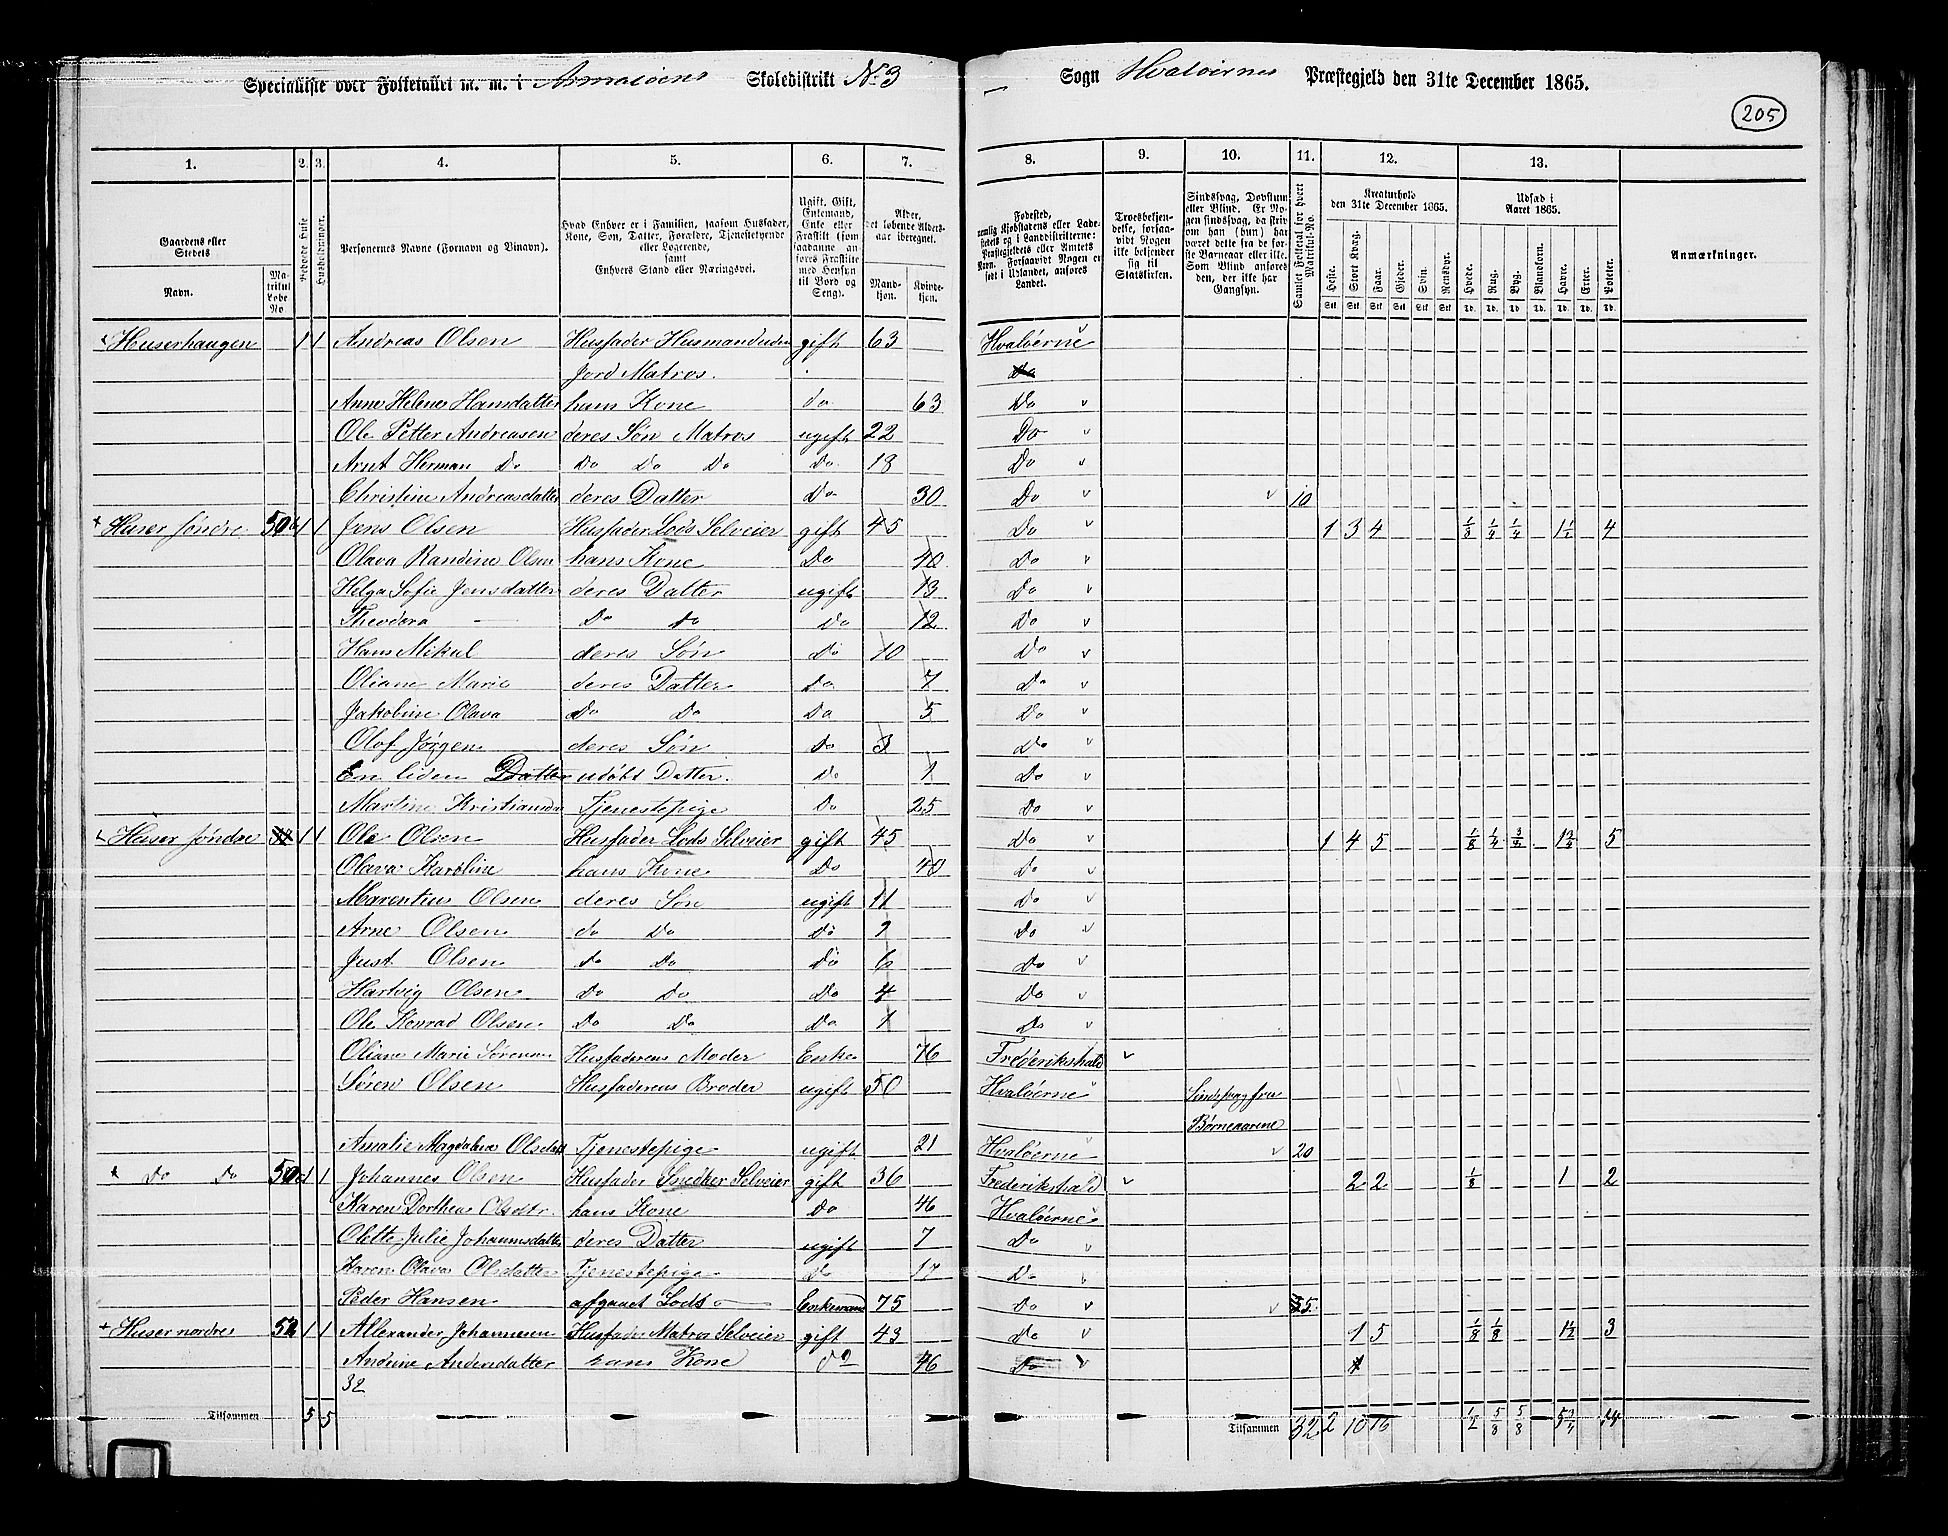 Specialliste over Folketallet m. m. i Asmaløens Skoledistrikt No 3 Sogn Hvaløernes Præstegjeld den 31te December 1865.
205
1. 2. 3. 4. 5. 6. 7. 8. 9. 10. 11. 12. 13.
Gaardens eller Stedets Navn. Matrikul Løbe No
Beboede Huse
Husholdninger.
Personernes Navne (Fornavn og Tilnavn).
Hvad Enhver er i Familien, saasom Husfader, Kone, Søn, Datter, Forældre, Tjenestetyende eller Logerende, samt Enhvers Stand eller Næringsvei.
Ugift, Gift, Enkemand, Enke eller Fraskilt (som saadanne anføres Fraskilte med Hensyn til Bord og Seng).
Alder, det løbende Aldersaar iberegnet. Mandkjøn. Kvindekjøn.
Fødested, nemlig Kjøbstadens eller Ladestedets og i Landdistrikterne: Præstegjeldets eller Amtets Navn. Forsaavidt Nogen er født i Udlandet, anføres Landet.
Troesbekjendelse, forsaavidt Nogen ikke bekjender sig til Statskirken.
Sindssvag, Døvstum eller Blind. Er Nogen sindssvag, da skrives om han (hun) har været dette fra de første Barneaar eller ikke. Som Blind anføres den, der ikke har Gangsyn.
Samlet Folketal for hvert Matrikul-No.
Kreaturhold den 31te December 1865.
Heste. Stort Kvæg. Faar. Gjeder. Svin. Rensdyr.
Udsæd i Aaret 1865.
Hvede. Rug. Byg. Blandkorn. Havre. Erter. Poteter.
Anmærkninger.
Huserhaugen 1 1 Andreas Olsen Husfader Husmand uden gift 63 Hvaløerne
Jord Matros. Do
Anne Helene Hansdatter hans Kone do 63 Do
Ole Petter Andreasen deres Søn Matros ugift 22 Do
Arnt Herman Do Do Do Do Do 18 Do
Christine Andreasdatter deres Datter Do 30 Do 10
Huser søndre 50 1 1 Jens Olsen Husfader Lods Selveier gift 45 Do 1 3 4 1/8 1/4 1/4 1 1/2 4
Olava Randine Olsen hans Kone Do 40 Do
Helga Sofie Jensdatter deres Datter ugift 13 Do
Theodora - Do do Do 12 Do
Hans Mikal deres Søn Do 10 Do
Oliane Marie deres Datter Do 7 Do
Jakobine Olava Do Do Do 5 Do
Olof Jørgen deres Søn Do 3 Do
En liden Datter udøbt Datter. Do 1 Do
Martine Kristiansda Tjenestepige Do 25 Do
Huser søndre 1 1 Ole Olsen Husfader Lods Selveier gift 45 Do 1 4 5 1/8 1/4 5
Olava Karoline hans Kone Do 40 Do
Marentius Olsen deres Søn ugift 11 Do
Arne Olsen do Do Do 9 Do
Just Olsen do Do Do 6 Do
Hartvig Olsen Do Do Do 4 Do
Ole Konrad Olsen. Do Do Do 1 Do
Oliane Marie Sørensen Husfaderens Moder Enke 76 Frederikshald
Søren Olsen Husfaderens Broder ugift 50 Hvaløerne Sindssvag fra
Børneaarene
Amalie Magdalena Olsdatt Tjenestepige ugift 21 Hvaløerne 20
Do Do 50 1 1 Johannes Olsen Husfader Snedker Selveier gift 36 Frederikshald 2 2 1/8 1 2
Karen Dorthea Olsdtr. hans Kone Do 46 Hvaløerne
Olette Julie Johannsdatter deres Datter ugift 7 Do
Karen Olava Olsdatter Tjenestepige Do 17 Do
Peder Hansen afgaaet Lods Enkemand 75 Do 5.
Huser nordre 52 1 1 Allexander Johannesen Husfader Matros Selveier gift 43 Do 1 5 1/8 1/8 1 1/2 3
Andrine Andersdatter hans Kone do 46 Do
32
Tilsammen 5 5 Tilsammen 32 2 10 16 1/2 5/8 5/8 5 3/4 14